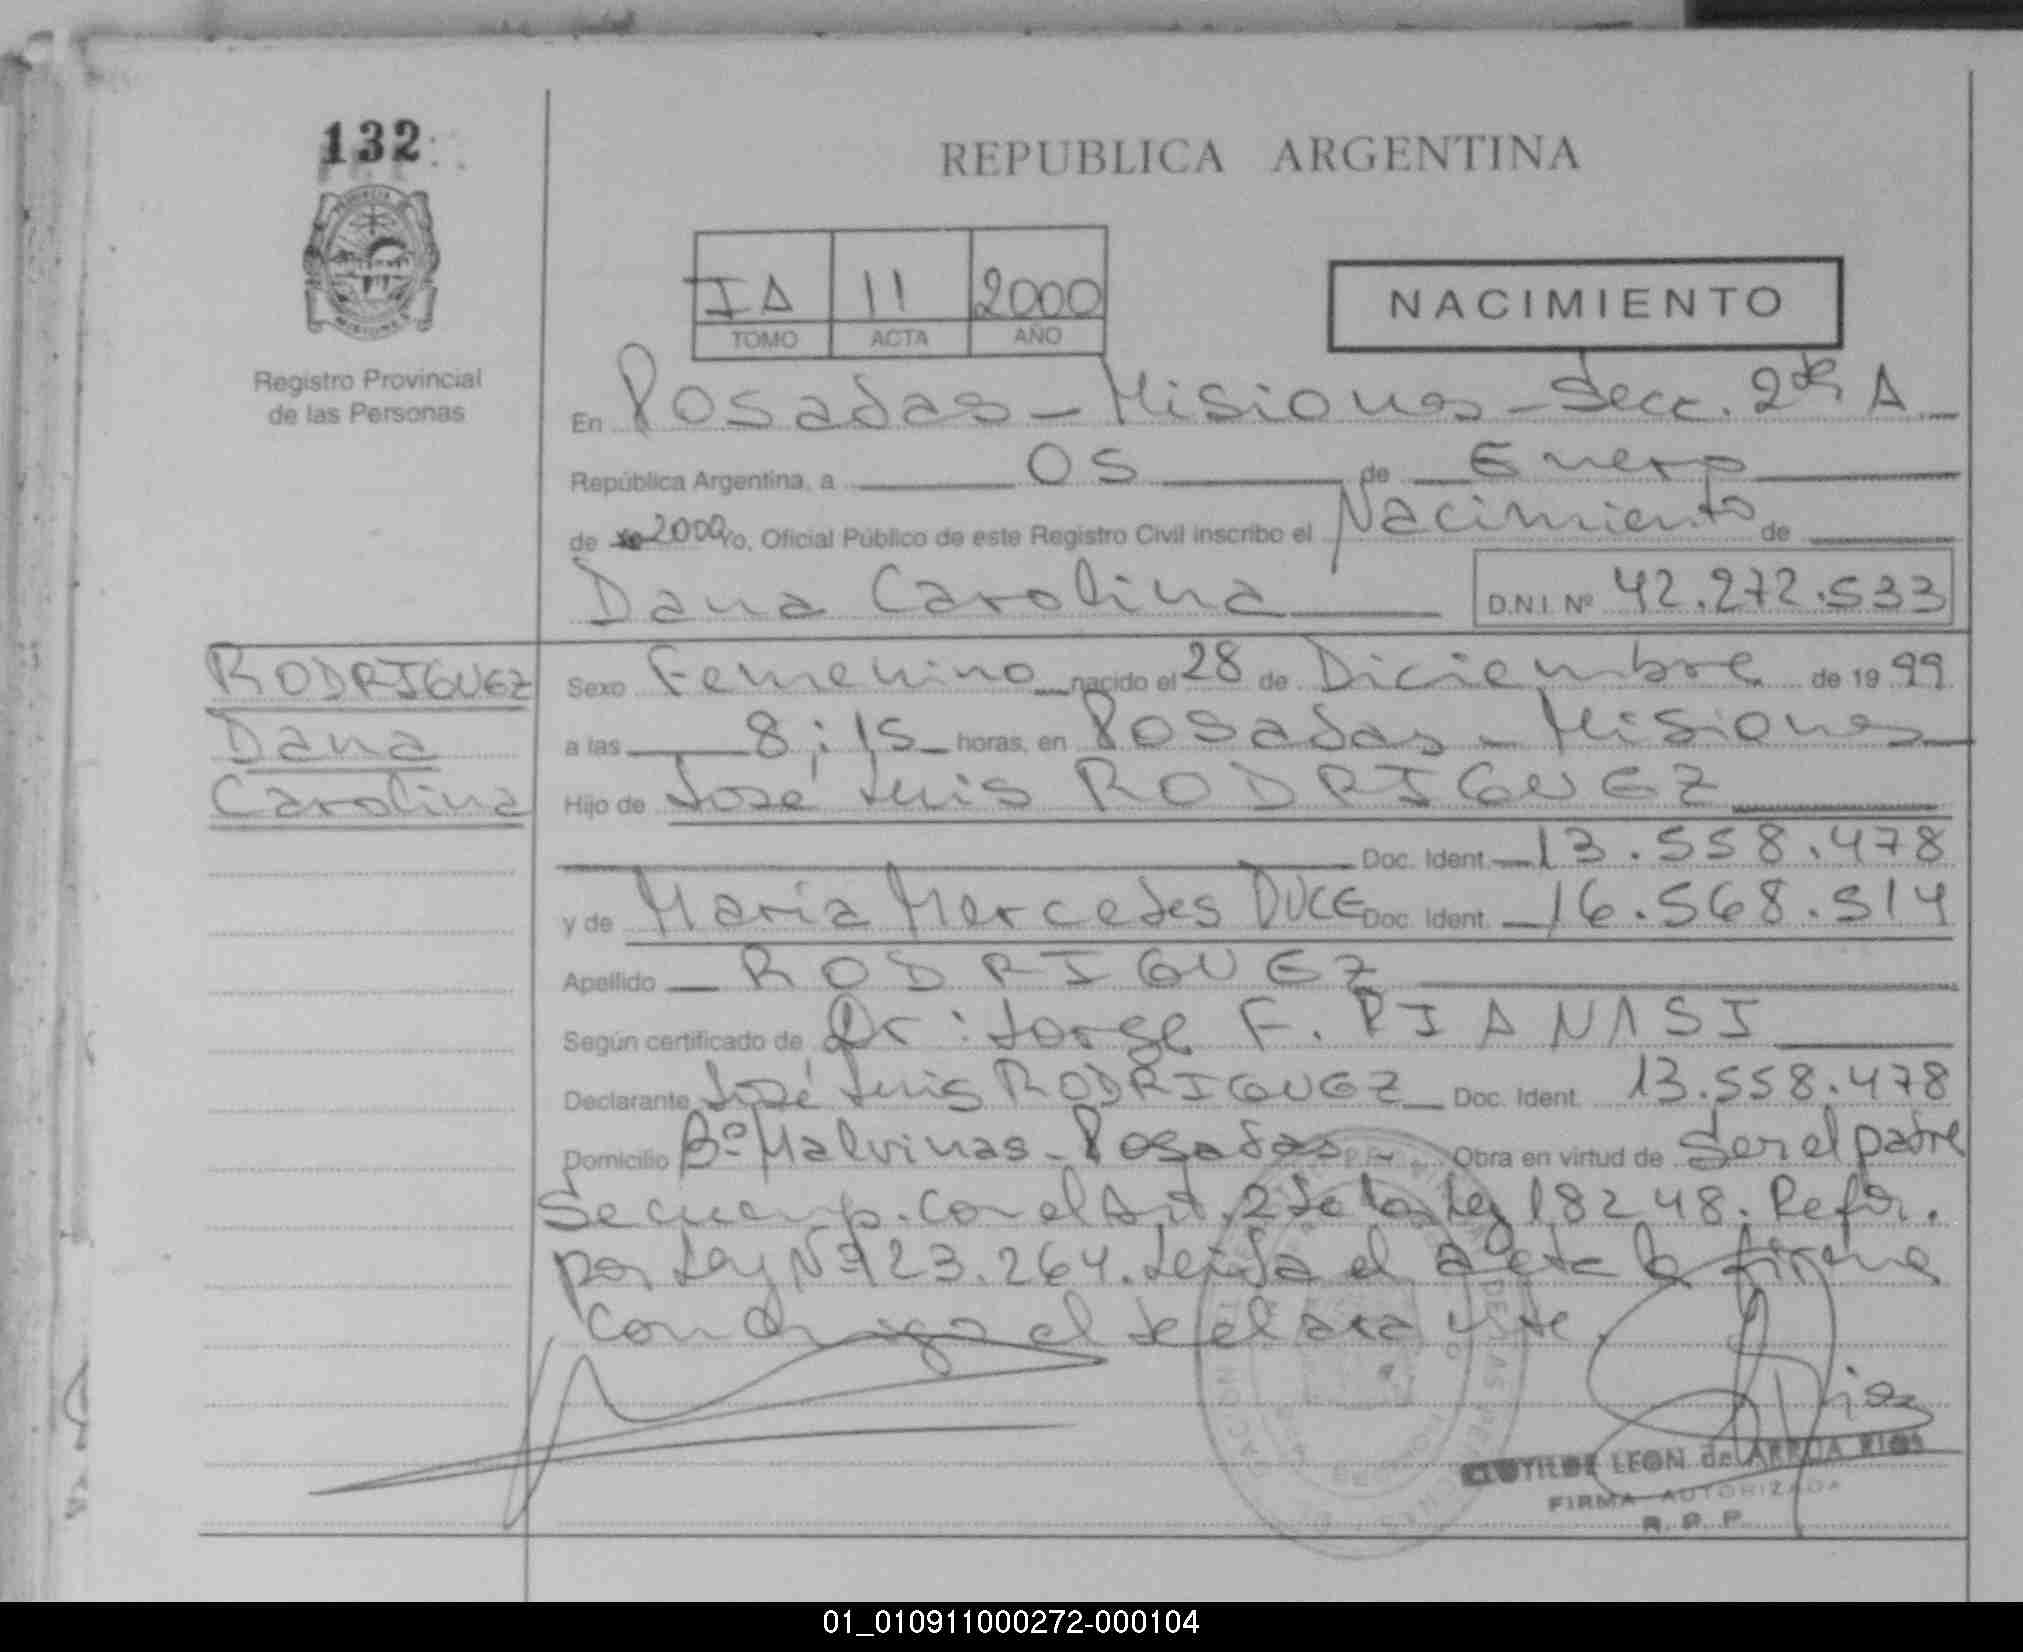 132
REPUBLICA ARGENTINA
IA 11 2000
TOMO ACTA AÑO
NACIMIENTO
Registro Provincial
de las Personas
En Posadas - Misiones - Secc. 2da A
República Argentina, a 05 de Enero
de 2000 Yo, Oficial Público de este Registro Civil inscribo el Nacimiento de
Dana Carolina D.N.I. Nº 42.272.533
RODRIGUEZ
Dana
Carolina
Sexo Femenino nacido el 28 de Diciembre de 19 99
a las 8:15 horas, en Posadas - Misiones
Hijo de José Luis RODRIGUEZ
Doc. Ident. 13.558.478
y de María Mercedes DUCE Doc. Ident. 16.568.514
Apellido RODRIGUEZ
Según certificado de Dr: Jorge F. PIANASI
Declarante José Luis RODRIGUEZ Doc. Ident. 13.558.478
Domicilio Bº Malvinas - Posadas - Obra en virtud de Ser el padre
Se cump. con el Art. 2 de la Ley 18248. Refor.
por Ley Nº 23.264. Leída el acta la firma
conmigo el declarante.
Díaz
CLOTILDE LEON de ARRUA RIOS
FIRMA AUTORIZADA
R. P. P.
01_010911000272-000104